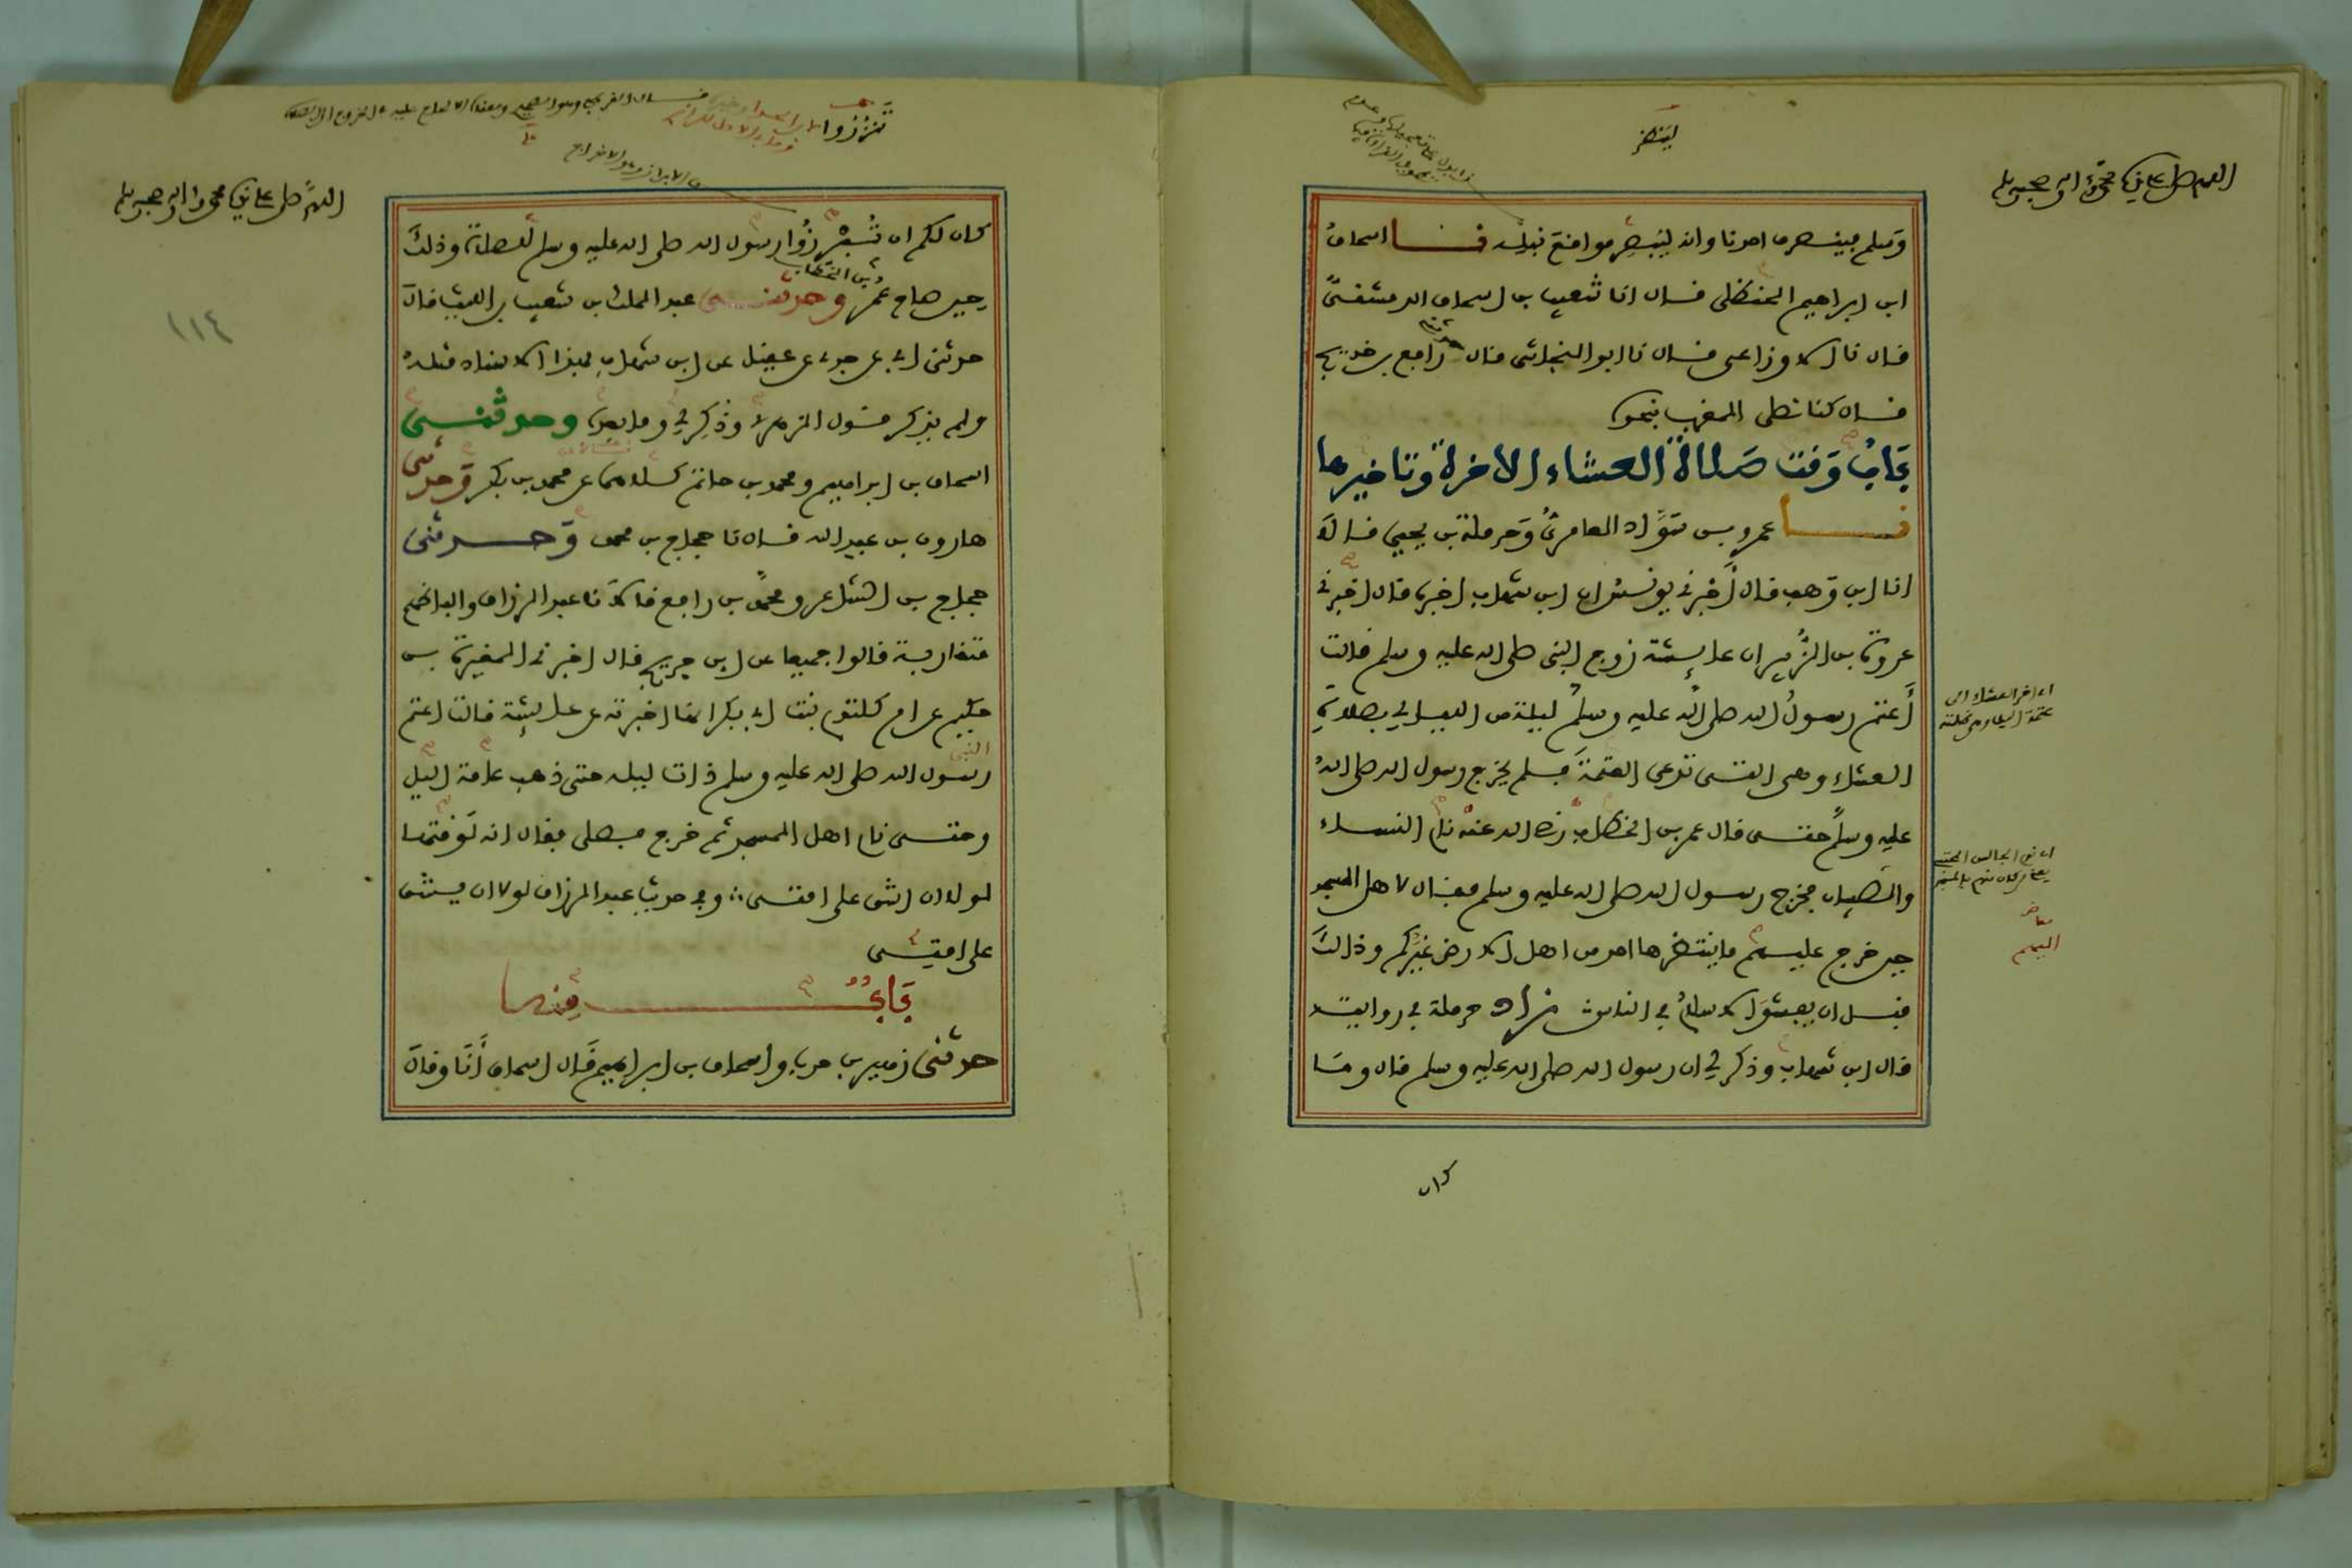 اللهم صل على نبيك محمد وآله وصحبه وسلم
لينظر
وسلم فينصرف احدنا وانه ليبصر مواقع نبله نا اسحاق
ابن ابراهيم الحنظلي قال انا شعيب بن اسحاق الدمشقي
قال نا الاوزاعي قال نا ابو النجاشي قال حدثني رافع بن خديج
قال كنا نصلي المغرب بنحوه
باب وقت صلاة العشاء الاخرة وتاخيرها
نا عمرو بن سواد العامري وحرملة بن يحيى قالا
انا ابن وهب قال أخبرني يونس ان ابن شهاب اخبره قال اخبرني
عروة بن الزبير ان عايشة زوج النبي صلى الله عليه وسلم قالت
أعتم رسول الله صلى الله عليه وسلم ليلة من الليالي بصلاة
العشاء وهي التي تدعى العتمة فلم يخرج رسول الله صلى الله
عليه وسلم حتى قال عمر بن الخطاب رضي الله عنه نام النساء
والصبيان فخرج رسول الله صلى الله عليه وسلم فقال لاهل المسجد
حين خرج عليهم ما ينتظرها احد من اهل الارض غيركم وذلك
قبل ان يفشو الاسلام في الناس زاد حرملة في روايته
قال ابن شهاب وذكر لي ان رسول الله صلى الله عليه وسلم قال وما
اي اخر العشاء الى
عتمة الليل وهي ظلمته
كان
تنزروا
اللهم صل على نبيك محمد وآله وصحبه وسلم
١١٤
كان لكم ان تبرزوا رسول الله صلى الله عليه وسلم للصلاة وذلك
حين صاح عمر بن الخطاب وحدثني عبد الملك بن شعيب بن الليث قال
حدثني ابي عن جدي عن عقيل عن ابن شهاب بهذا الاسناد مثله
ولم يذكر قول الزهري وذكر لي وما بعده وحدثني
اسحاق بن ابراهيم ومحمد بن حاتم كلاهما عن محمد بن بكر وحدثني
هارون بن عبد الله قال نا حجاج بن محمد وحدثني
حجاج بن الشاعر ومحمد بن رافع قالا نا عبد الرزاق والفاظهم
متقاربة قالوا جميعا عن ابن جريج قال اخبرني المغيرة بن
حكيم عن ام كلثوم بنت ابي بكر انها اخبرته عن عايشة قالت اعتم
النبي
رسول الله صلى الله عليه وسلم ذات ليلة حتى ذهب عامة اليل
وحتى نام اهل المسجد ثم خرج فصلى فقال انه لوقتها
لولا ان اشق على امتي وفي حديث عبد الرزاق لولا ان يشق
على امتي
باب منه
حدثني زهير بن حرب واسحاق بن ابراهيم قال اسحاق أنا وقال